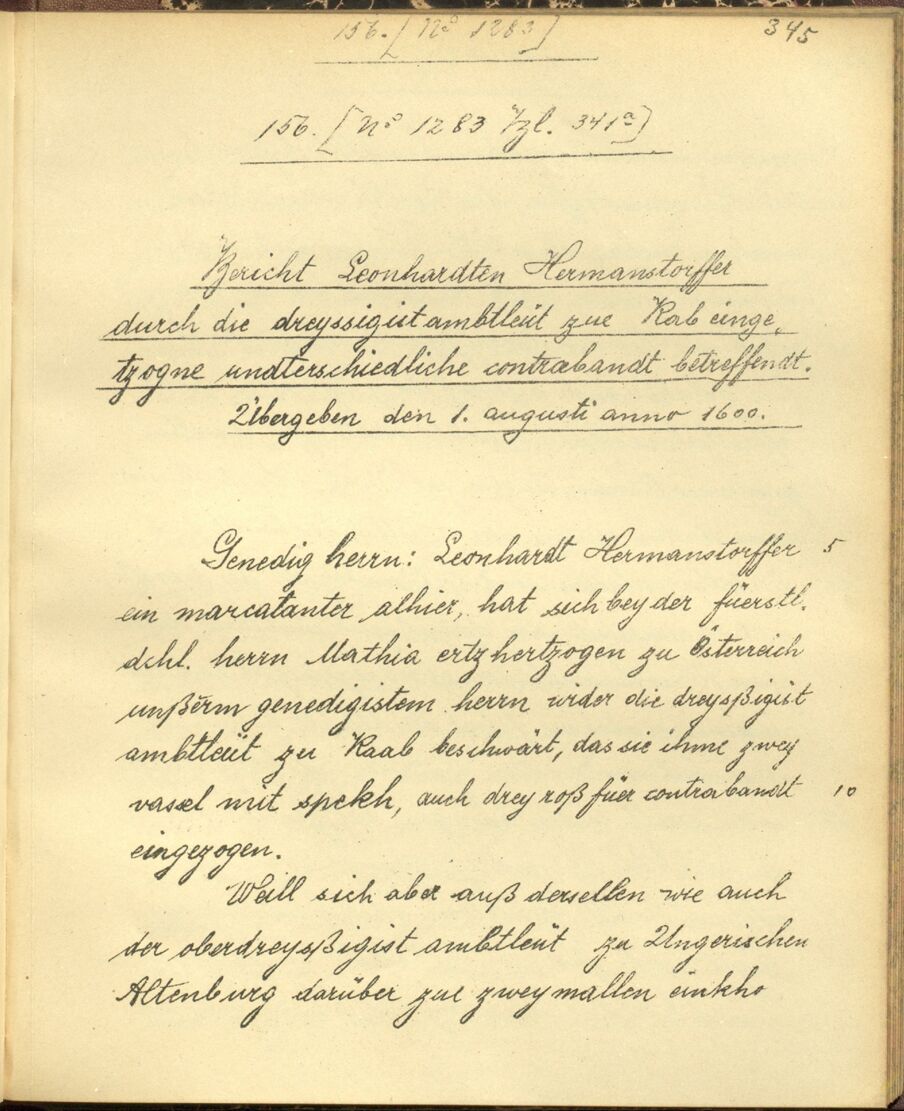 156. [N° 1283]
345
156. [N° 1283 Izl. 341a]
Bericht Leonhardten Hermanstorffer
durch die dreyssigist ambtleüt zue Rab einge,
tzogne undterschiedliche contrabandt betreffendt.
Übergeben den 1. augusti anno 1600.
Genedig herrn: Leonhardt Hermanstorffer 5
ein marcatanter alhier, hat sich bey der füerstl.
dchl. herrn Mathia ertzhertzogen zu Österreich
unßerm genedigistem herrn wider die dreysßigist
ambtleüt zu Raab beschwärt, das sie ihme zwey
vassel mit spekh, auch drey roß füer contrabandt 10
eingezogen.
Weill sich aber auß dersellen wie auch
der oberdreysßigist ambtleüt zu Ungerischen
Altenburg darüber zue zweymallen einkho